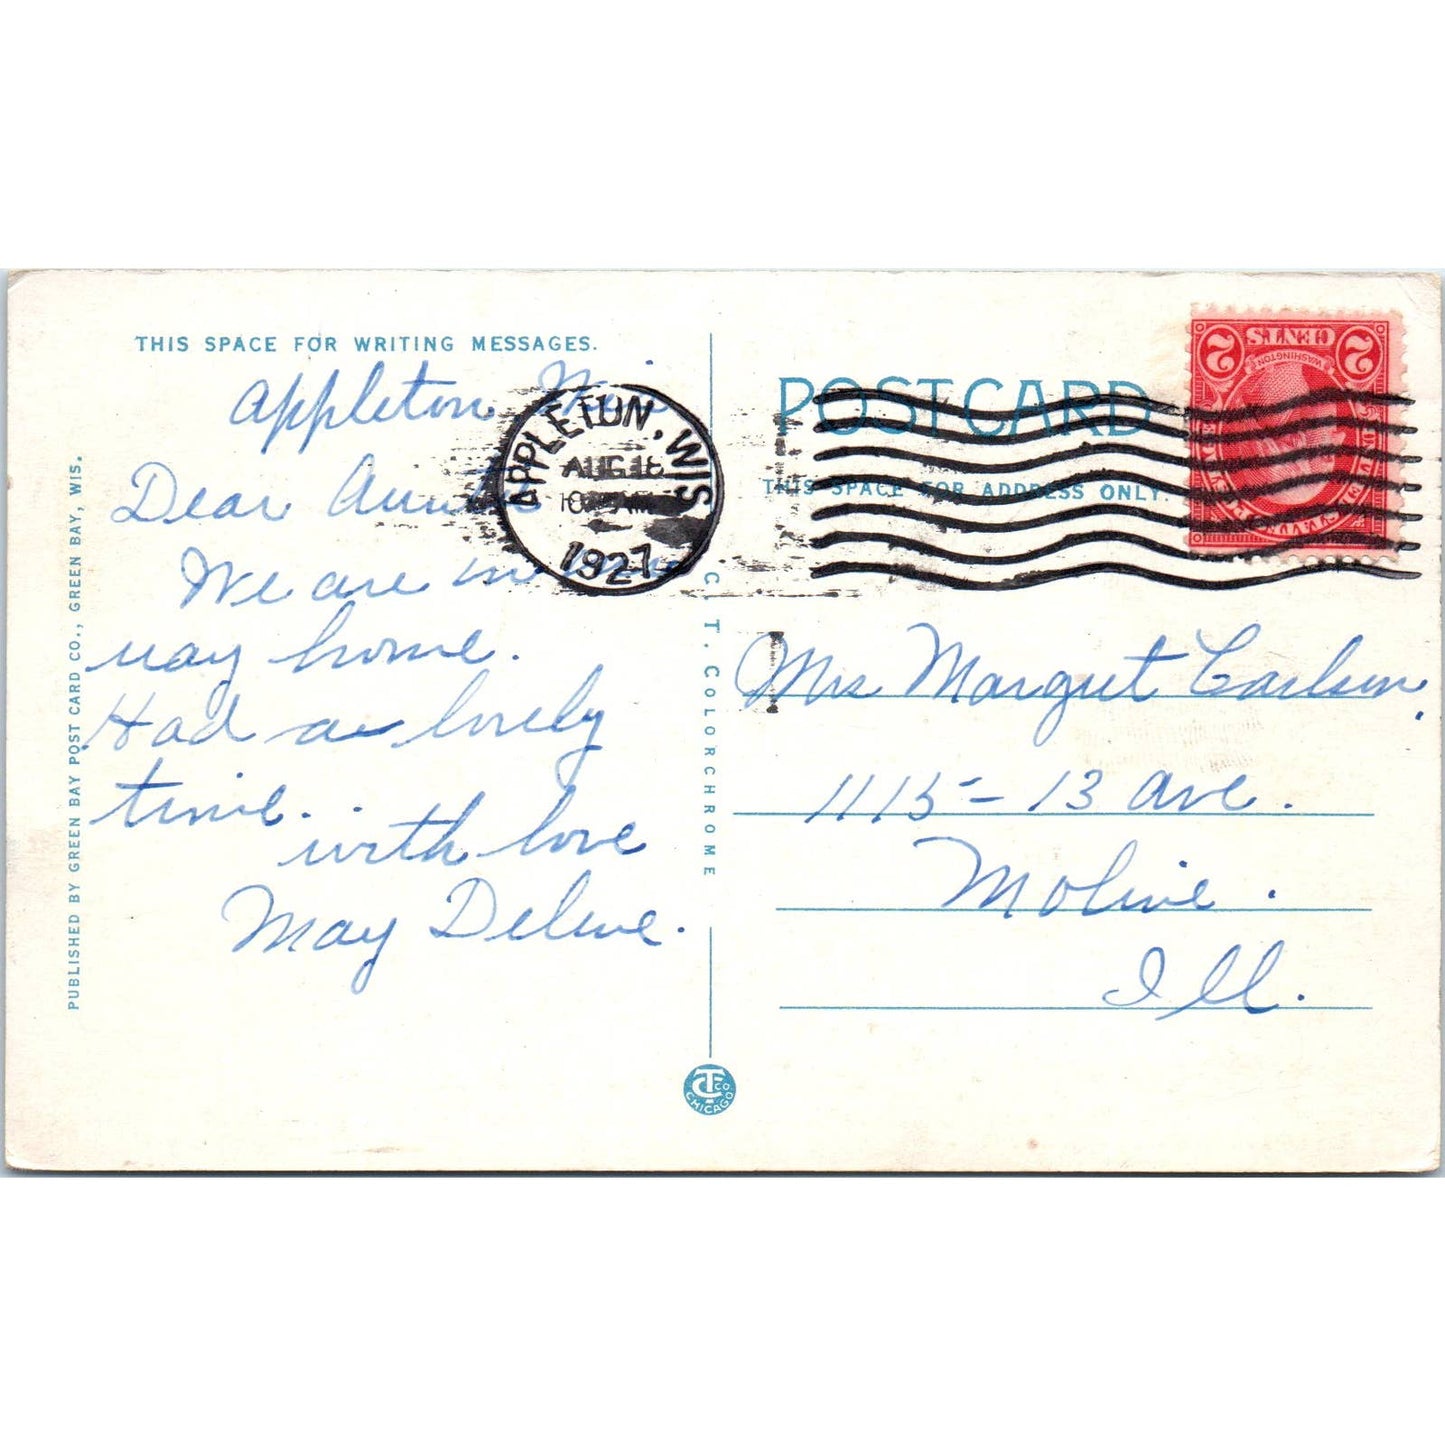 THIS SPACE FOR WRITING MESSAGES.
Appleton
Dear
We are in
way home.
Had a lovely
time.
with love
May
PUBLISHED BY GREEN BAY POST CARD CO., GREEN BAY, WIS.
APPLETON, WIS
AUG 18
AM
1927
C. T. COLORCHROME
CTCO.
CHICAGO
POST CARD
THIS SPACE FOR ADDRESS ONLY.
2 CENTS 2
WASHINGTON
Mrs Margret Carlson,
1115 - 13 Ave.
Moline.
Ill.